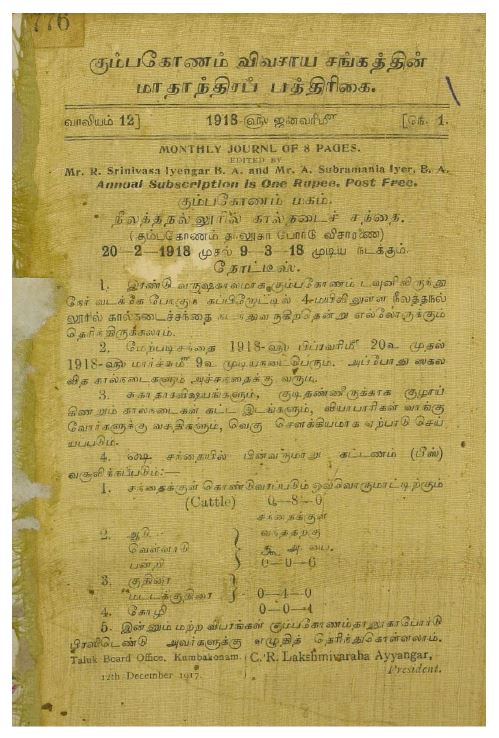 776
கும்பகோணம் விவசாய சங்கத்தின்
மாதாந்திரப் பத்திரிகை.
வாலியம் 12] 1918 ௵ ஜனவரி௴ [நெ. 1.
MONTHLY JOURNL OF 8 PAGES.
EDITED BY
Mr. R. Srinivasa Iyengar B. A. and Mr. A. Subramania Iyer, B. A.
Annual Subscription is One Rupee, Post Free.
கும்பகோணம் மகம்.
நீலத்தநல்லூரில் கால்நடைச் சந்தை.
(கும்பகோணம் தாலூகா போர்டு விசாரணை)
20—2—1918 முதல் 9—3—18 முடிய நடக்கும்.
நோட்டீஸ்.
1. இரண்டு வருஷகாலமாக கும்பகோணம் டவுனிலிருந்து
நேர் வடக்கே போகும் கப்பிரோட்டில் 4-மயிலிலுள்ள நீலத்தநல்
லூரில் கால்நடைச்சந்தை நடந்துவருகிறதென்று எல்லோருக்கும்
தெரிந்திருக்கலாம்.
2. மேற்படி சந்தை 1918-௵ பிப்ரவரி௴ 20உ முதல்
1918-௵ மார்ச்சு௴ 9உ முடிய நடைபெறும். அப்போது சகல
வித கால்நடைகளும் அச்சந்தைக்கு வரும்.
3. சுகாதார விஷயங்களும், குடிதண்ணீருக்காக குழாய்
கிணறும் கால்நடைகள் கட்ட இடங்களும், வியாபாரிகள் வாங்கு
வோர்களுக்கு வசதிகளும், வெகு சௌக்கியமாக ஏற்பாடு செய்
யப்படும்.
4. ௸ சந்தையில் பின்வருமாறு கட்டணம் (பீஸ்)
வசூலிக்கப்படும்:—
1. சந்தைக்குள் கொண்டுவரப்படும் ஒவ்வொரு மாட்டிற்கும்
(Cattle) 0—8—0
சந்தைக்குள்
2. ஆடு வந்ததற்கு
வெள்ளாடு ரூ. அ. பை.
பன்றி 0—0—6
3. குதிரை
மட்டக்குதிரை 0—4—0
4. கோழி 0—0—4
5. இன்னும் மற்ற விபரங்கள் கும்பகோணம் தாலூகா போர்டு
பிரஸிடெண்டு அவர்களுக்கு எழுதித் தெரிந்துகொள்ளலாம்.
Taluk Board Office, Kumbakonam. C. R. Lakshmivaraha Ayyangar,
12th December 1917. President.